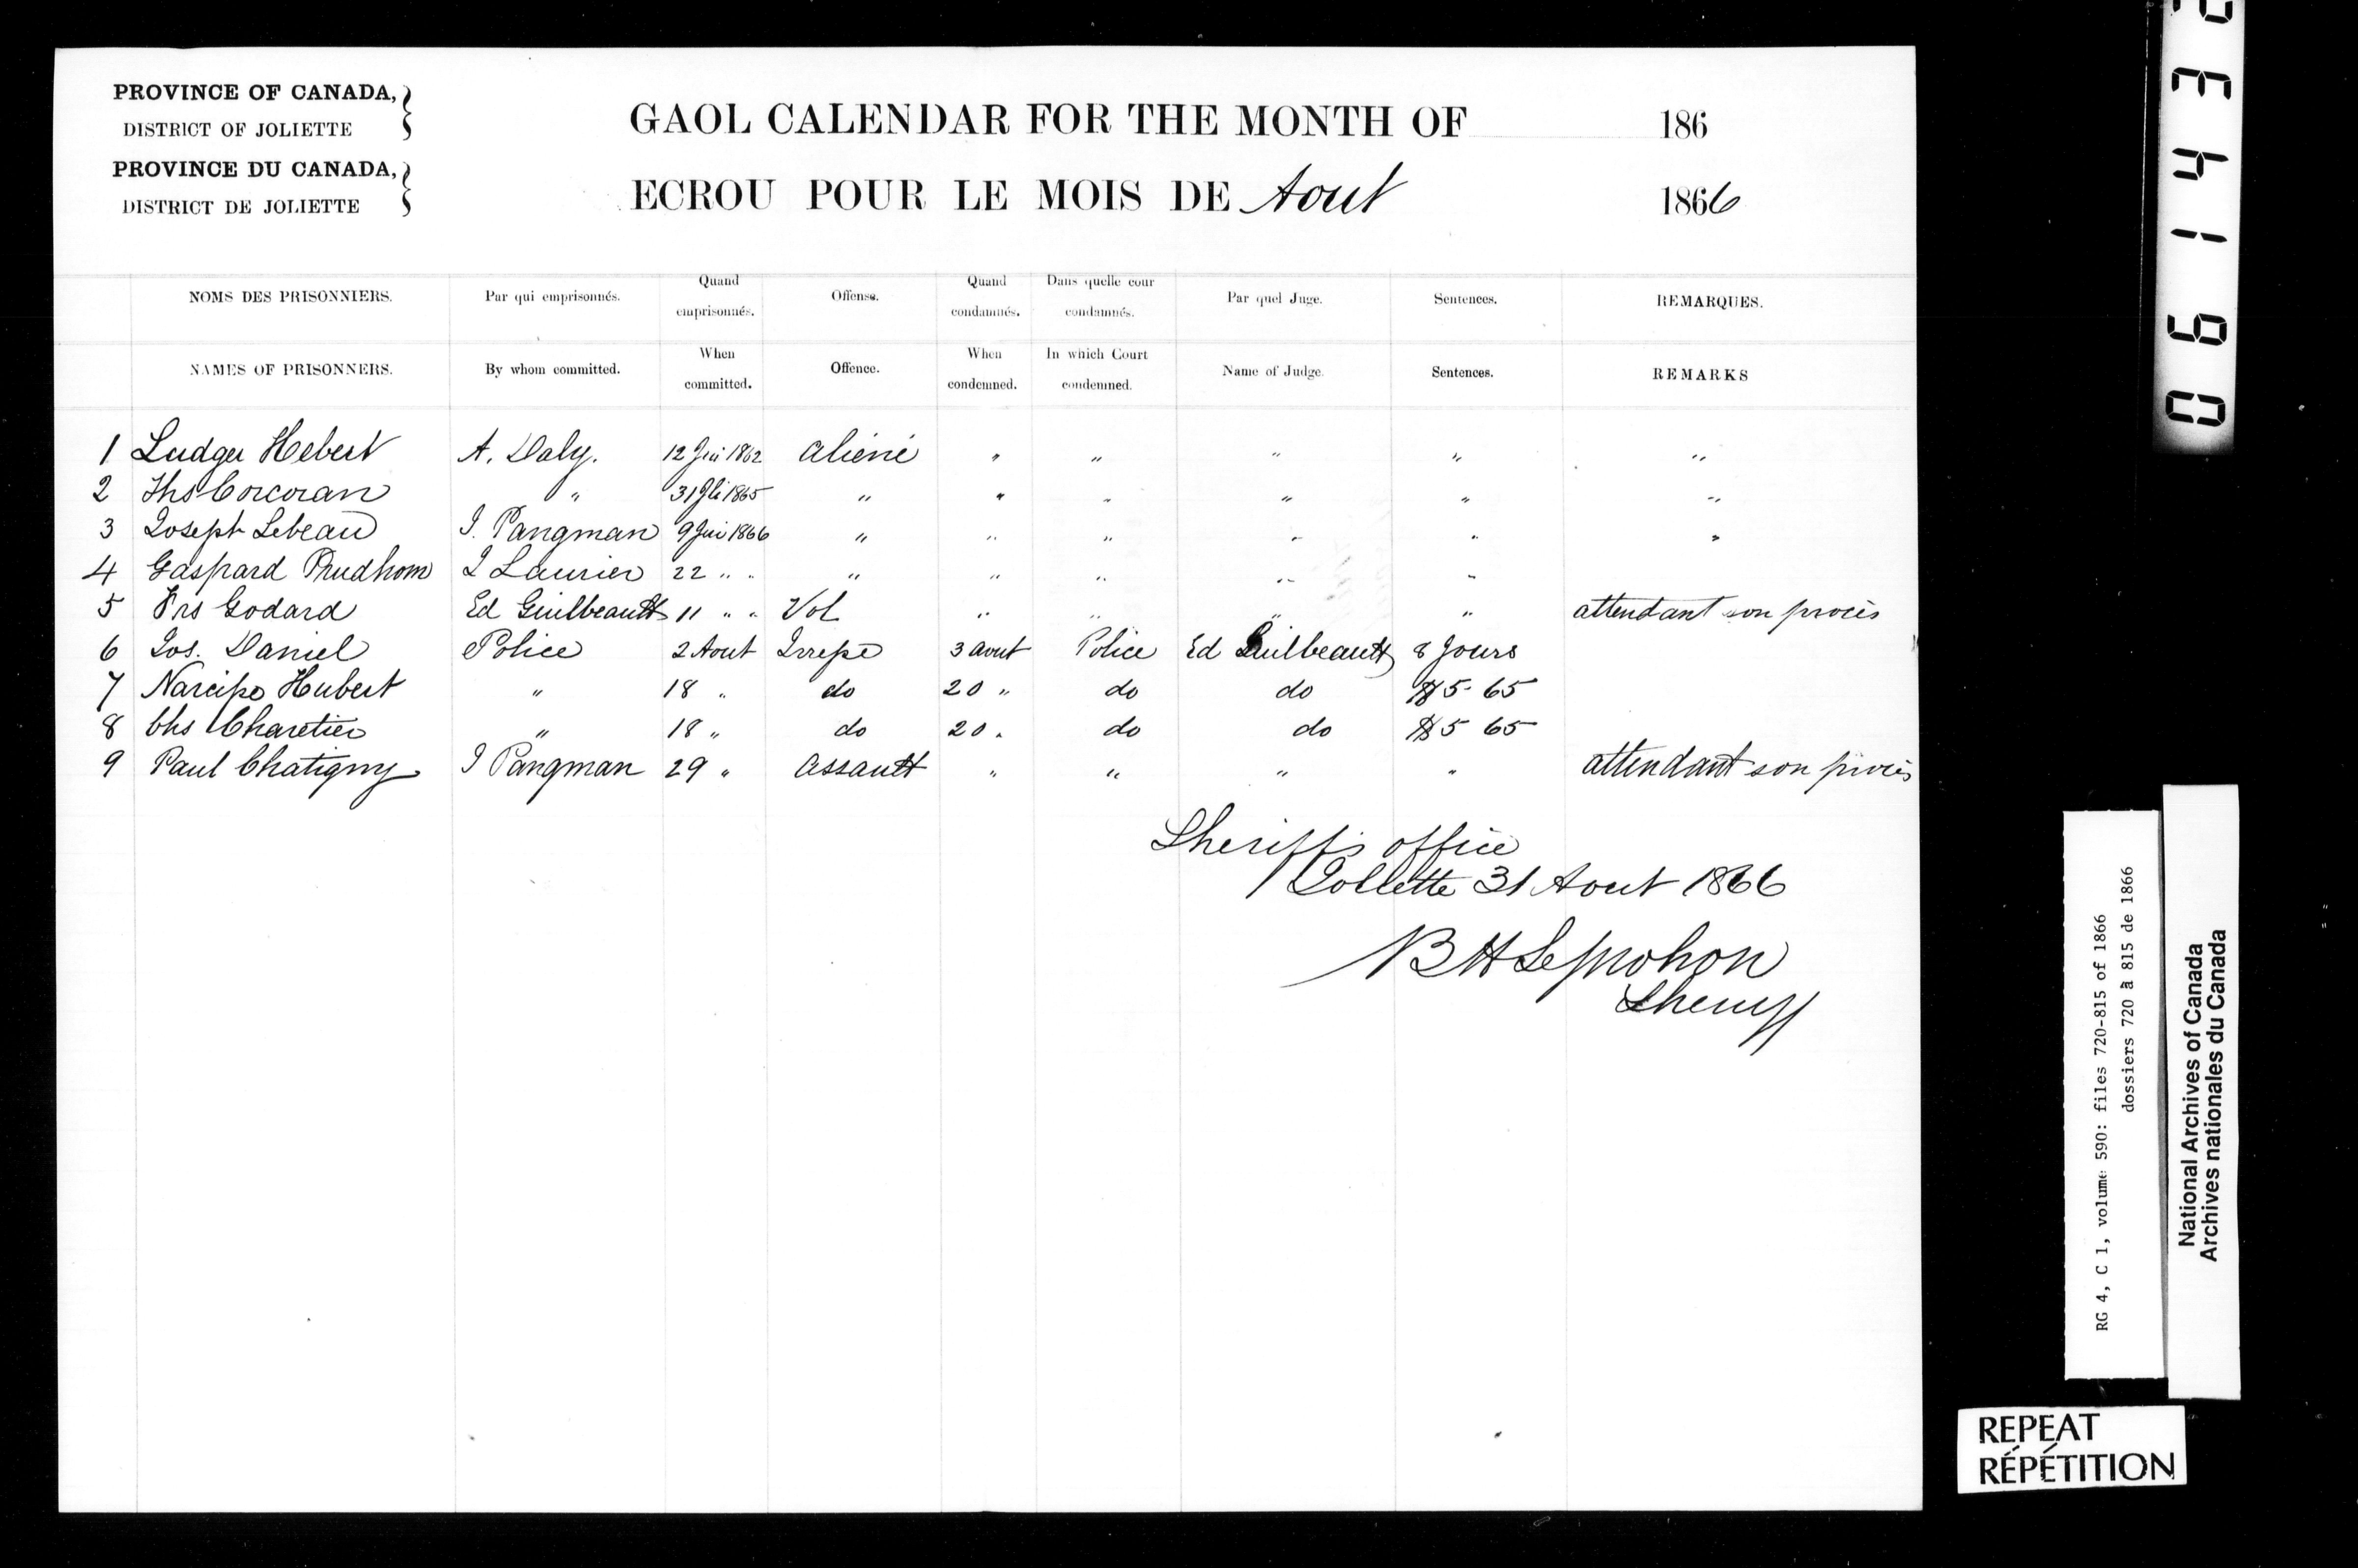 PROVINCE OF CANADA,
DISTRICT OF JOLIETTE
PROVINCE DU CANADA,
DISTRICT DE JOLIETTE
GAOL CALENDAR FOR THE MONTH OF 186
ECROU POUR LE MOIS DE Aout 1866
NOMS DES PRISONNIERS. Par qui emprisonnés. Quand emprisonnés. Offense. Quand condamnés. Dans quelle cour condamnés. Par quel Juge. Sentences. REMARQUES.
NAMES OF PRISONNERS. By whom committed. When committed. Offence. When condemned. In which Court condemned. Name of Judge. Sentences. REMARKS
1 Ludger Hebert A. Daly. 12 Jui 1862 aliéné " " " " "
2 Ths Corcoran " 31 Jli 1865 " " " " " "
3 Joseph Lebeau J. Pangman 9 Jui 1866 " " " " " "
4 Gaspard Prudhom J Laurier 22 " " " " " " "
5 Frs Godard Ed Guilbeault 11 " " Vol " " " " attendant son procès
6 Jos. Daniel Police 2 Aout Ivresse 3 aout Police Ed Guilbeault 8 Jours
7 Narcisse Hubert " 18 " do 20 " do do $5 65
8 Chs Charetier " 18 " do 20 " do do $5 65
9 Paul Chatigny J Pangman 29 " assault " " " " attendant son procès
Sheriff's office
Joliette 31 Aout 1866
B H Leprohon
Sheriff
06143
RG 4, C 1, volume 590: files 720-815 of 1866
dossiers 720 à 815 de 1866
National Archives of Canada
Archives nationales du Canada
REPEAT
RÉPÉTITION